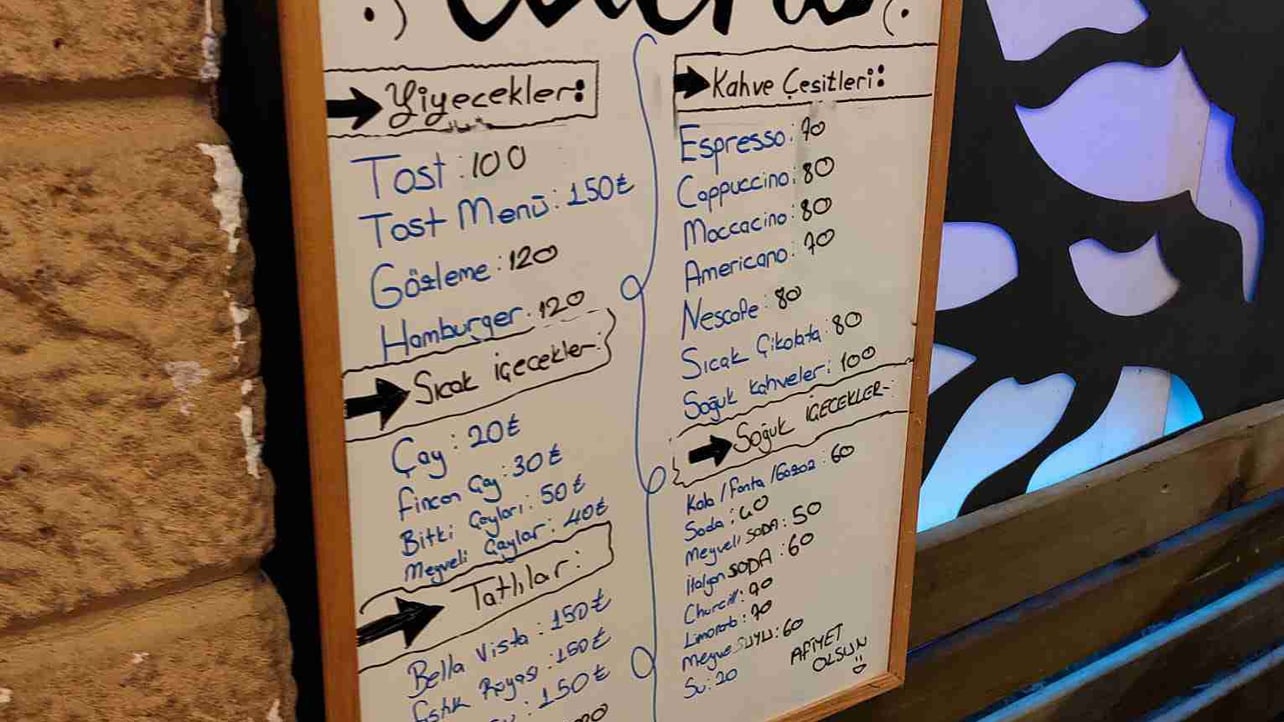 Yiyecekler:
Tost : 100
Tost Menü : 150₺
Gözleme : 120
Hamburger : 120
Sıcak içecekler:
Çay : 20₺
Fincan Çay : 30₺
Bitki Çayları : 50₺
Meyveli Çaylar : 40₺
Tatlılar :
Bella Vista : 150₺
Fıstık Rüyası : 150₺
: 150₺
Kahve Çeşitleri:
Espresso : 70
Cappuccino : 80
Moccacino : 80
Americano : 70
Nescafe : 80
Sıcak Çikolata : 80
Soğuk kahveler : 100
Soğuk İÇECEKLER
Kola / Fanta / Gazoz : 60
Soda : 40
Meyveli SODA : 50
İtalyan SODA : 60
Churcill : 70
Limonata : 70
Meyve SUYU : 60
Su : 20
AFİYET
OLSUN